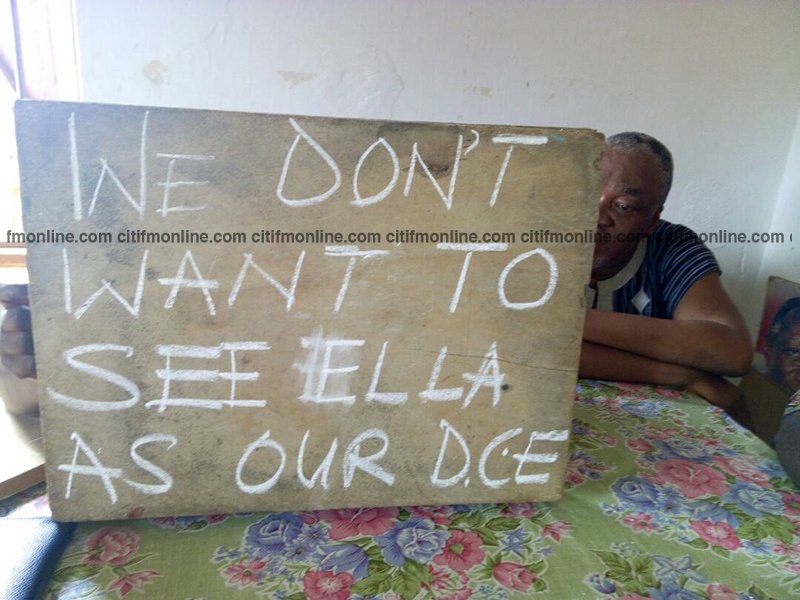 WE DON'T
fmonline.com citifmonline.com citifmonline.com citifmonline.com citifmonline.com citifmonline.com
WANT TO
SEE ELLA
AS OUR D.C.E